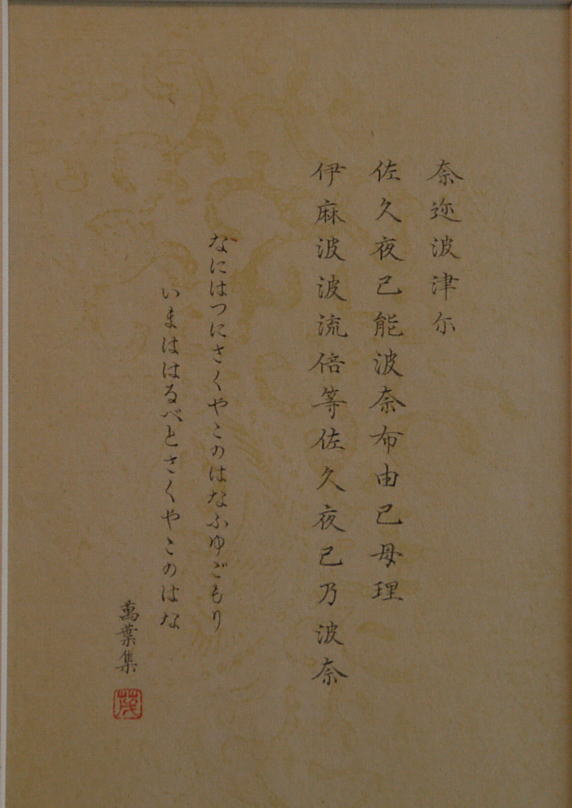 奈迩波津尓
佐久夜己能波奈布由己母理
伊麻波波流倍等佐久夜己乃波奈
なにはつにさくやこのはなふゆごもり
いまははるべとさくやこのはな
萬葉集
茂